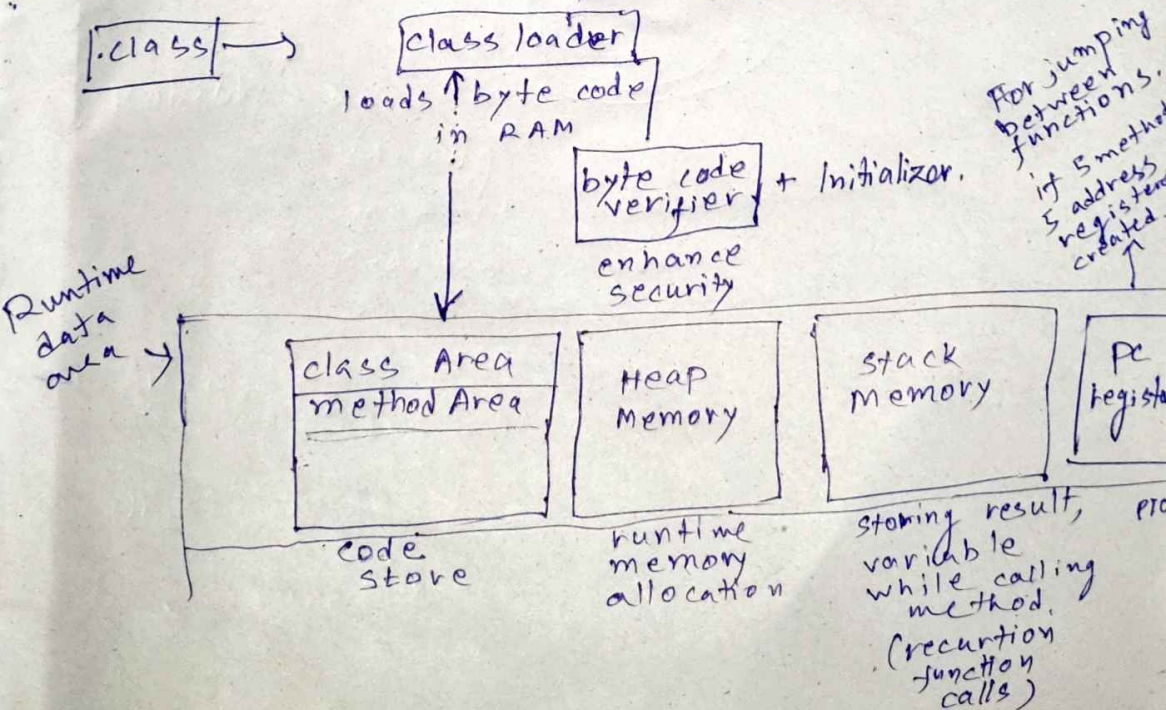 .class
class loader
loads byte code
in RAM
byte code
verifier
+ Initializer.
enhance
security
For jumping
between
functions.
if 5 method
5 address
register
created
Runtime
data
area
class Area
method Area
code
store
Heap
Memory
runtime
memory
allocation
stack
Memory
storing result,
variable
while calling
method.
(recurtion
function
calls)
PC
registe
pro